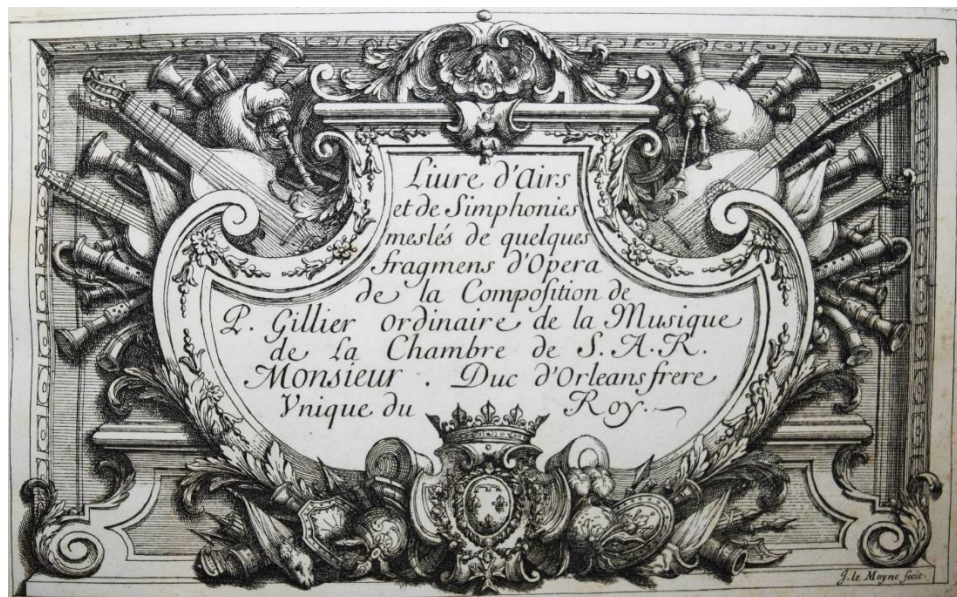 Liure d'Airs
et de Simphonies
meslés de quelques
fragmens d'Opera
de la Composition de
P. Gillier ordinaire de la Musique
de La Chambre de S. A. R.
Monsieur . Duc d'Orleans frere
Vnique du Roy.
J. le Moyne fecit.